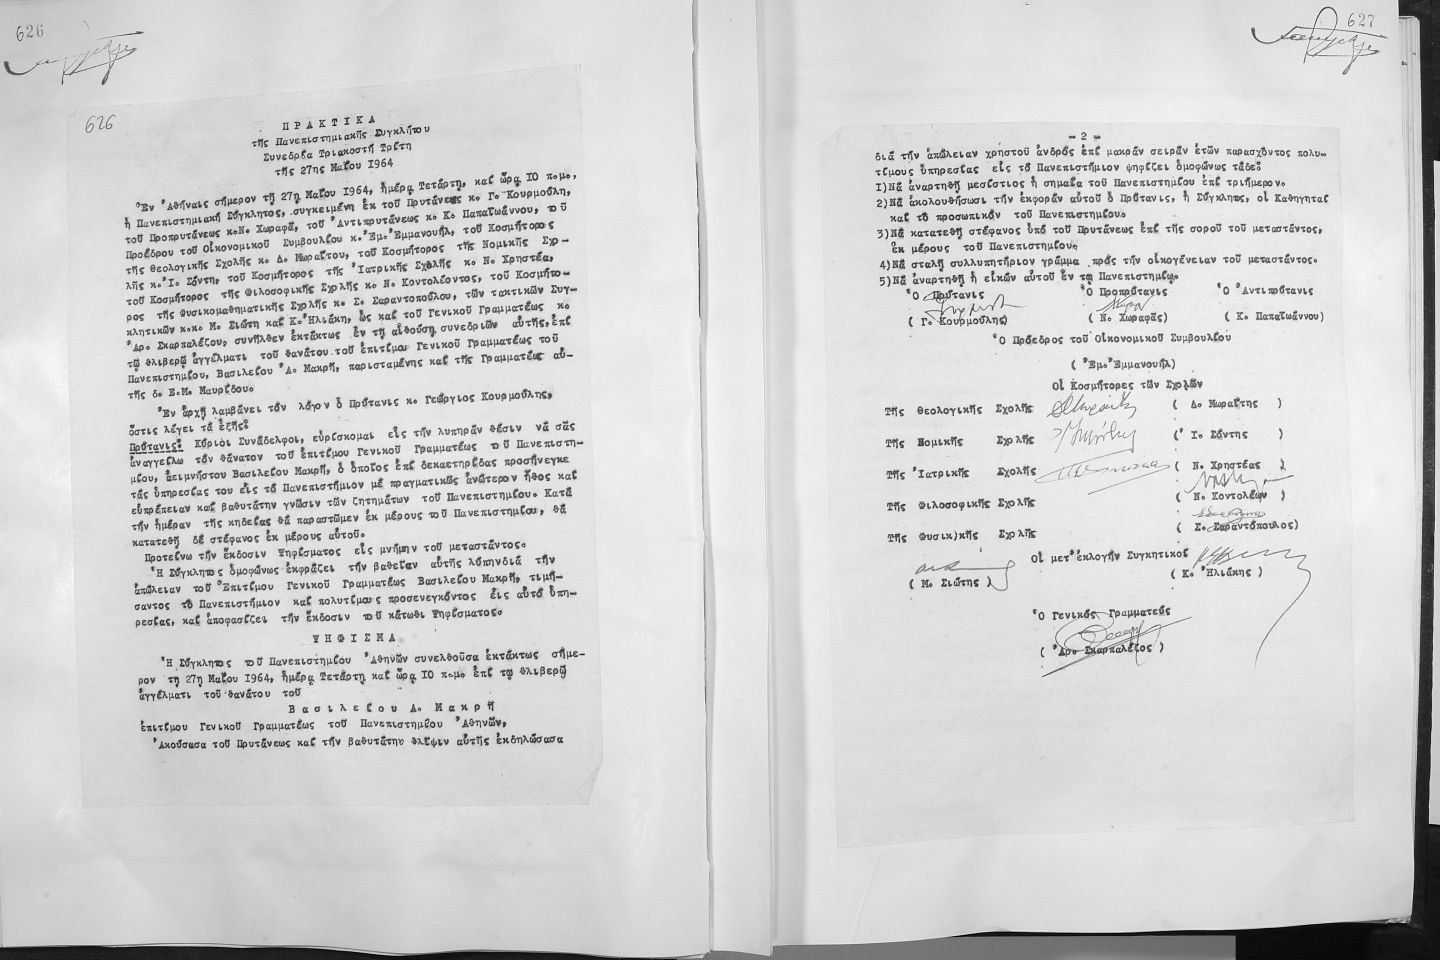 626
626
ΠΡΑΚΤΙΚΑ
τῆς Πανεπιστημιακῆς Συγκλήτου
Συνεδρία Τριακοστή Τρίτη
τῆς 27ης Μαΐου 1964
Ἐν Ἀθήναις σήμερον τῇ 27ῃ Μαΐου 1964, ἡμέρᾳ Τετάρτῃ, καί ὥρᾳ 10 π.μ.,
ἡ Πανεπιστημιακή Σύγκλητος, συγκειμένη ἐκ τοῦ Πρυτάνεως κ. Γ. Κουρμούλη,
τοῦ Προπρυτάνεως κ.Ν. Χωραφᾶ, τοῦ Ἀντιπρυτάνεως κ. Κ. Παπαϊωάννου, τοῦ
Προέδρου τοῦ Οἰκονομικοῦ Συμβουλίου κ. Ἐμ. Ἐμμανουήλ, τοῦ Κοσμήτορος
τῆς Θεολογικῆς Σχολῆς κ. Δ. Μωραΐτου, τοῦ Κοσμήτορος τῆς Νομικῆς Σχο-
λῆς κ. Ἰ. Σόντη, τοῦ Κοσμήτορος τῆς Ἰατρικῆς Σχολῆς κ. Ν. Χρηστέα,
τοῦ Κοσμήτορος τῆς Φιλοσοφικῆς Σχολῆς κ. Ν. Κοντολέοντος, τοῦ Κοσμήτο-
ρος τῆς Φυσικομαθηματικῆς Σχολῆς κ. Σ. Σαραντοπούλου, τῶν τακτικῶν Συγ-
κλητικῶν κ.κ. Μ. Σιώτη καί Κ. Ἠλιάκη, ὡς καί τοῦ Γενικοῦ Γραμματέως κ.
Ἀρ. Σκαρπαλέζου, συνῆλθεν ἐκτάκτως ἐν τῇ αἰθούσῃ συνεδριῶν αὐτῆς, ἐπί
τῷ θλιβερῷ ἀγγέλματι τοῦ θανάτου τοῦ ἐπιτίμου Γενικοῦ Γραμματέως τοῦ
Πανεπιστημίου, Βασιλείου Ἀ. Μακρῆ, παρισταμένης καί τῆς Γραμματέως αὐ-
τῆς δ. Ε.Μ. Μαυρίδου.
Ἐν ἀρχῇ λαμβάνει τόν λόγον ὁ Πρύτανις κ. Γεώργιος Κουρμούλης,
ὅστις λέγει τά ἑξῆς:
Πρύτανις: Κύριοι Συνάδελφοι, εὑρίσκομαι εἰς τήν λυπηράν θέσιν νά σᾶς
ἀναγγείλω τόν θάνατον τοῦ ἐπιτίμου Γενικοῦ Γραμματέως τοῦ Πανεπιστη-
μίου, ἀειμνήστου Βασιλείου Μακρῆ, ὁ ὁποῖος ἐπί δεκαετηρίδας προσήνεγκε
τάς ὑπηρεσίας του εἰς τό Πανεπιστήμιον μέ πραγματικῶς ἀνώτερον ἦθος καί
εὐπρέπειαν καί βαθυτάτην γνῶσιν τῶν ζητημάτων τοῦ Πανεπιστημίου. Κατά
τήν ἡμέραν τῆς κηδείας θά παραστῶμεν ἐκ μέρους τοῦ Πανεπιστημίου, θά
κατατεθῇ δέ στέφανος ἐκ μέρους αὐτοῦ.
Προτείνω τήν ἔκδοσιν Ψηφίσματος εἰς μνήμην τοῦ μεταστάντος.
Ἡ Σύγκλητος ὁμοφώνως ἐκφράζει τήν βαθεῖαν αὐτῆς λύπηνδιά τήν
ἀπώλειαν τοῦ Ἐπιτίμου Γενικοῦ Γραμματέως Βασιλείου Μακρῆ, τιμή-
σαντος τό Πανεπιστήμιον καί πολυτίμους προσενεγκόντος εἰς αὐτό ὑπη-
ρεσίας, καί ἀποφασίζει τήν ἔκδοσιν τοῦ κάτωθι Ψηφίσματος.
ΨΗΦΙΣΜΑ
Ἡ Σύγκλητος τοῦ Πανεπιστημίου Ἀθηνῶν συνελθοῦσα ἐκτάκτως σήμε-
ρον τῇ 27ῃ Μαΐου 1964, ἡμέρᾳ Τετάρτῃ καί ὥρᾳ 10 π.μ. ἐπί τῷ θλιβερῷ
ἀγγέλματι τοῦ θανάτου τοῦ
Βασιλείου Α. Μακρῆ
ἐπιτίμου Γενικοῦ Γραμματέως τοῦ Πανεπιστημίου Ἀθηνῶν,
Ἀκούσασα τοῦ Πρυτάνεως καί τήν βαθυτάτην θλῖψιν αὐτῆς ἐκδηλώσασα
627
- 2 -
διά τήν ἀπώλειαν χρηστοῦ ἀνδρός ἐπί μακράν σειράν ἐτῶν παρασχόντος πολυ-
τίμους ὑπηρεσίας εἰς τό Πανεπιστήμιον ψηφίζει ὁμοφώνως τάδε:
1)Νά ἀναρτηθῇ μεσίστιος ἡ σημαία τοῦ Πανεπιστημίου ἐπί τριήμερον.
2)Νά ἀκολουθήσωσι τήν ἐκφοράν αὐτοῦ ὁ Πρύτανις, ἡ Σύγκλητος, οἱ Καθηγηταί
καί τό προσωπικόν τοῦ Πανεπιστημίου.
3)Νά κατατεθῇ στέφανος ὑπό τοῦ Πρυτάνεως ἐπί τῆς σοροῦ τοῦ μεταστάντος,
ἐκ μέρους τοῦ Πανεπιστημίου.
4)Νά σταλῇ συλλυπητήριον γράμμα πρός τήν οἰκογένειαν τοῦ μεταστάντος.
5)Νά ἀναρτηθῇ ἡ εἰκών αὐτοῦ ἐν τῷ Πανεπιστημίῳ.
Ὁ Πρύτανις Ὁ Προπρύτανις Ὁ Ἀντιπρύτανις
( Γ. Κουρμούλης) ( Ν. Χωραφᾶς) ( Κ. Παπαϊωάννου)
Ὁ Πρόεδρος τοῦ Οἰκονομικοῦ Συμβουλίου
( Ἐμ. Ἐμμανουήλ)
Οἱ Κοσμήτορες τῶν Σχολῶν
Τῆς Θεολογικῆς Σχολῆς ( Δ. Μωραΐτης )
Τῆς Νομικῆς Σχολῆς ( Ἰ. Σόντης )
Τῆς Ἰατρικῆς Σχολῆς ( Ν. Χρηστέας )
Τῆς Φιλοσοφικῆς Σχολῆς ( Ν. Κοντολέων )
Τῆς Φυσικ)κῆς Σχολῆς ( Σ. Σαραντόπουλος)
Οἱ μετ' ἐκλογήν Συγκητικοί
( Μ. Σιώτης ) ( Κ. Ἠλιάκης )
Ὁ Γενικός Γραμματεύς
( Ἀρ. Σκαρπαλέζος )